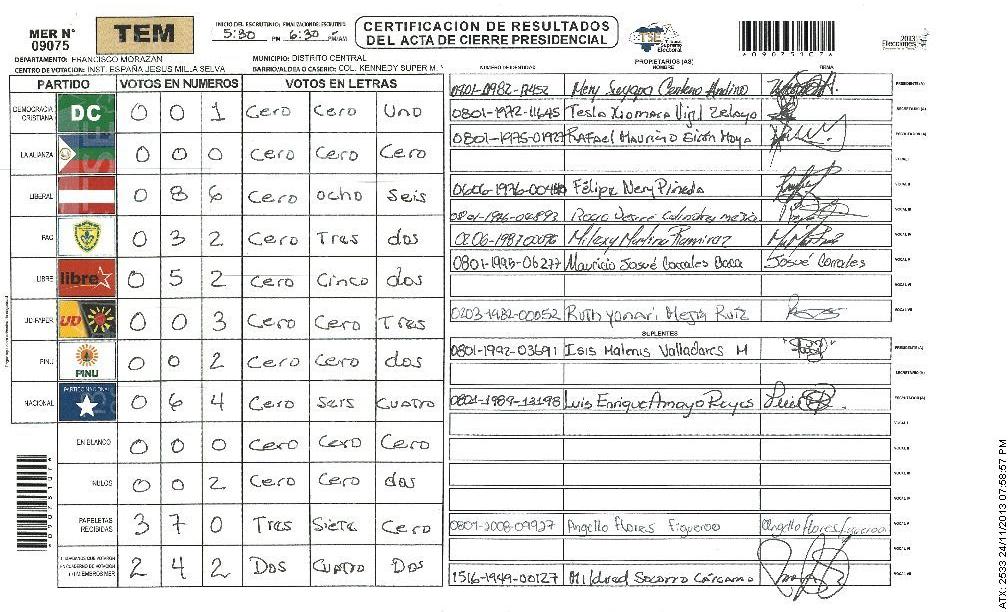 MER N° 09075
TEM
INICIO DEL ESCRUTINIO: FINALIZACION DE ESCRUTINIO
5:30 PM 6:30 PM/AM
CERTIFICACION DE RESULTADOS
DEL ACTA DE CIERRE PRESIDENCIAL
TSE Tribunal Supremo Electoral
A09075107A
2013 Elecciones
DEPARTAMENTO: FRANCISCO MORAZAN
MUNICIPIO: DISTRITO CENTRAL
CENTRO DE VOTACION: INST. ESPAÑA JESUS MILLA SELVA
BARRIO/ALDEA O CASERIO: COL. KENNEDY SUPER M.
PROPIETARIOS (AS)
NUMERO DE IDENTIDAD NOMBRE FIRMA
PARTIDO VOTOS EN NUMEROS VOTOS EN LETRAS
DEMOCRACIA CRISTIANA DC 0 0 1 Cero Cero Uno
LA ALIANZA 0 0 0 Cero Cero Cero
LIBERAL 0 8 6 Cero ocho Seis
PAC 0 3 2 Cero Tres dos
LIBRE libre 0 5 2 Cero Cinco dos
UD-FAPER UD 0 0 3 Cero Cero Tres
PINU PINU 0 0 2 Cero Cero dos
NACIONAL PARTIDO NACIONAL 0 6 4 Cero Seis Cuatro
EN BLANCO 0 0 0 Cero Cero Cero
NULOS 0 0 2 Cero Cero dos
PAPELETAS RECIBIDAS 3 7 0 Tres Siete Cero
CIUDADANOS QUE VOTARON EN CUADERNO DE VOTACION (+) MIEMBROS MER 2 4 2 Dos Cuatro Dos
PRESIDENTE(A)
0801-1972-11645 Tesla Xiomara Vijil Zelaya SECRETARIO (A)
0801-1975-01927 Rafael Mauricio Giron Moya ESCRUTADOR (A)
VOCAL I
Félipe Nery Pineda VOCAL II
VOCAL III
Milexy Martina Ramirez VOCAL IV
0801-1995-06277 Mauricio Josué Corrales Baca Josué Corrales VOCAL V
VOCAL VI
0203-1982-00052 Ruth yamari Mejia Ruiz VOCAL VII
SUPLENTES
0801-1992-03691 Isis Malenis Valladares M PRESIDENTE (A)
SECRETARIO (A)
0801-1989-13198 Luis Enrique Amaya Reyes Luis ESCRUTADOR (A)
VOCAL I
VOCAL II
VOCAL III
VOCAL IV
0801-2008-09927 Angello Flores Figueroa Angello Flores Figueroa VOCAL V
VOCAL VI
1516-1949-00127 Mildred Socorro Cárcamo VOCAL VII
A09075107A
ATX: 2533 24/11/2013 07:58:57 PM